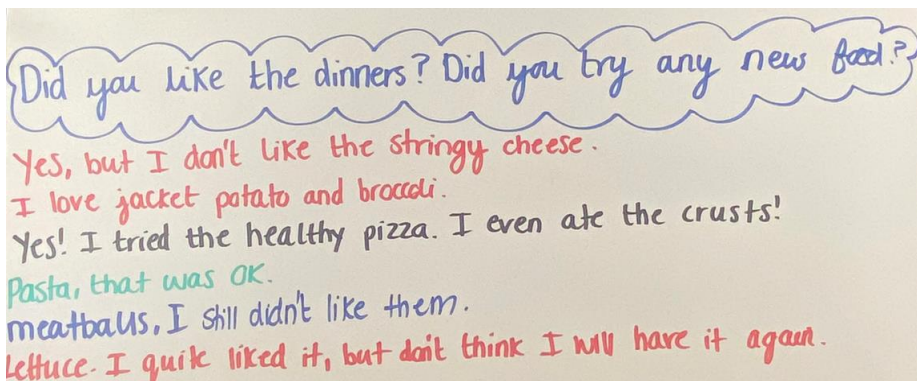 Did you like the dinners? Did you try any new food?
Yes, but I don't like the stringy cheese.
I love jacket potato and broccoli.
Yes! I tried the healthy pizza. I even ate the crusts!
Pasta, that was OK.
meatballs, I still didn't like them.
Lettuce. I quite liked it, but don't think I will have it again.